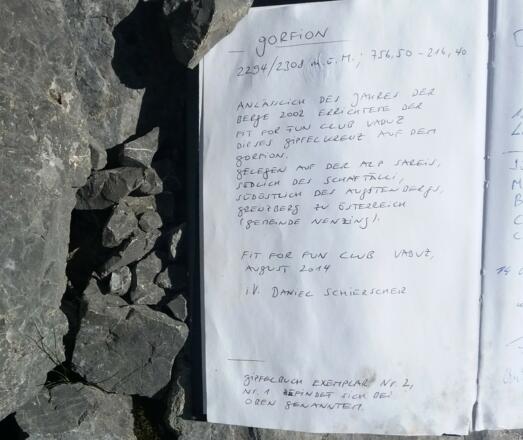 GORFION
2294/2308 m.ü.M.; 756,50 - 216,40
ANLÄSSLICH DES JAHRES DER
BERGE 2002 ERRICHTETE DER
FIT FOR FUN CLUB VADUZ
DIESES GIPFELKREUZ AUF DEM
GORFION.
GELEGEN AUF DER ALP SAREIS,
SÜDLICH DES SCHAFTÄLLI,
SÜDÖSTLICH DES AUGSTENBERGS,
GRENZBERG ZU ÖSTERREICH
(GEMEINDE NENZING).
FIT FOR FUN CLUB VADUZ,
AUGUST 2014
i.V. DANIEL SCHIERSCHER
GIPFELBUCH EXEMPLAR NR. 2,
NR. 1 BEFINDET SICH BEI
OBEN GENANNTEM.